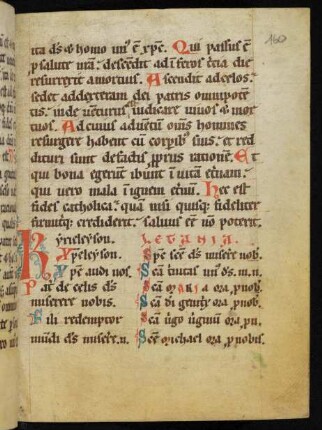 160
ita ds & homo un' ē xpc. Qui passus ē
p salute nrā: descēdit ad īferos tcia die
resurrexit a mortuis. Ascendit ad celos:
sedet ad dexteram dei patris omnipotē
tis: inde uenturus iudicare uiuos & mor
tuos. Ad cuius aduētū oms homines
resurgere habent cū corpib; suis: et red
dituri sunt de factis pprus rationē. Et
qui bona egerunt ibunt ī uitā etnam:
qui uero mala ī ignem etnū. Hec est
fides catholica: quā nisi quisq; fideliter
firmitq; crediderit: saluus eē nō poterit.
Kyrieleyson.
Xpeleyson.
Xpe audi nos
Pat de celis ds
miserere nobis.
Fili redemptor
mūdi ds misere. n.
LETANIA.
Spc scē ds misere nob.
Scā trinitas un' ds. m. n.
Scā MARIA ora p nob.
Scā di genitx ora p nob.
Scā ūgo ūginū ora. p n.
Scē michael ora p nobis.